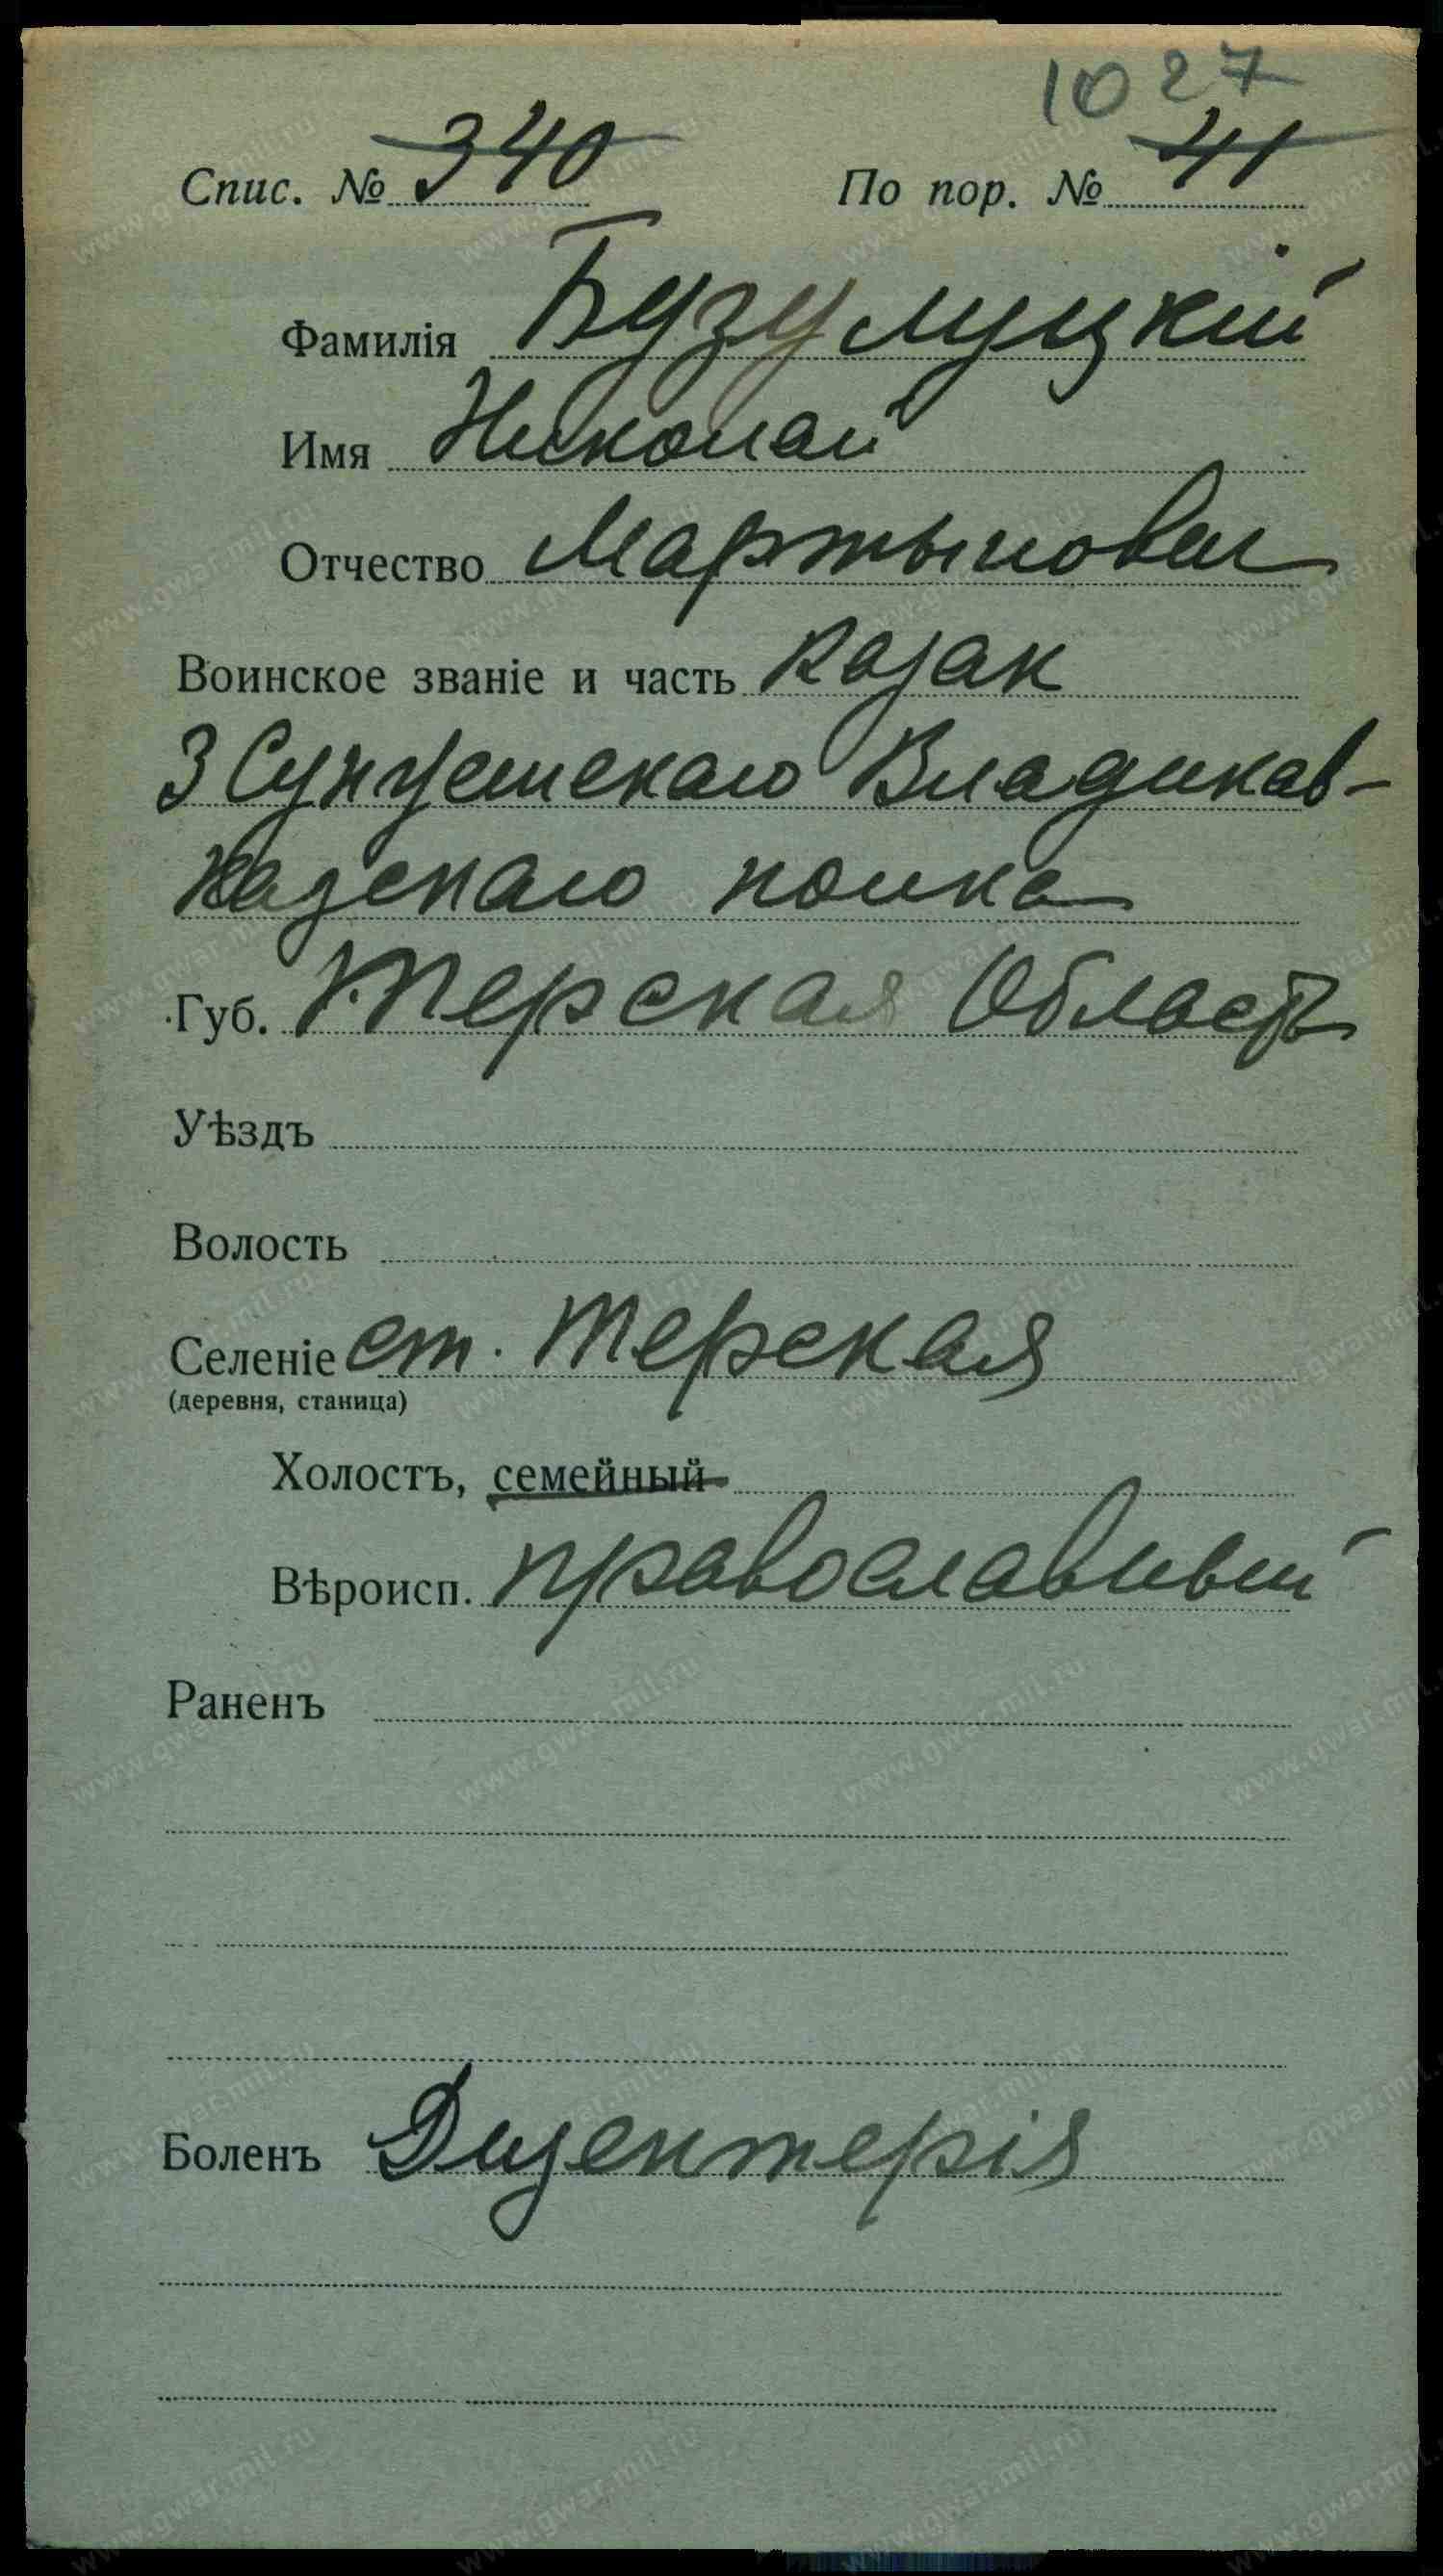 1027
Спис. № 340 По пор. № 41
Фамилія Бузулуцкій
Имя Николай
Отчество Мартынович
Воинское званіе и часть Козак
3 Сунженскаго Владикав-
казскаго полка
Губ. Терская Область
Уѣздъ
Волость
Селеніе ст. Терская
(деревня, станица)
Холостъ, семейный
Вѣроисп. православный
Раненъ
Боленъ Дизентерія
www.gwar.mil.ru